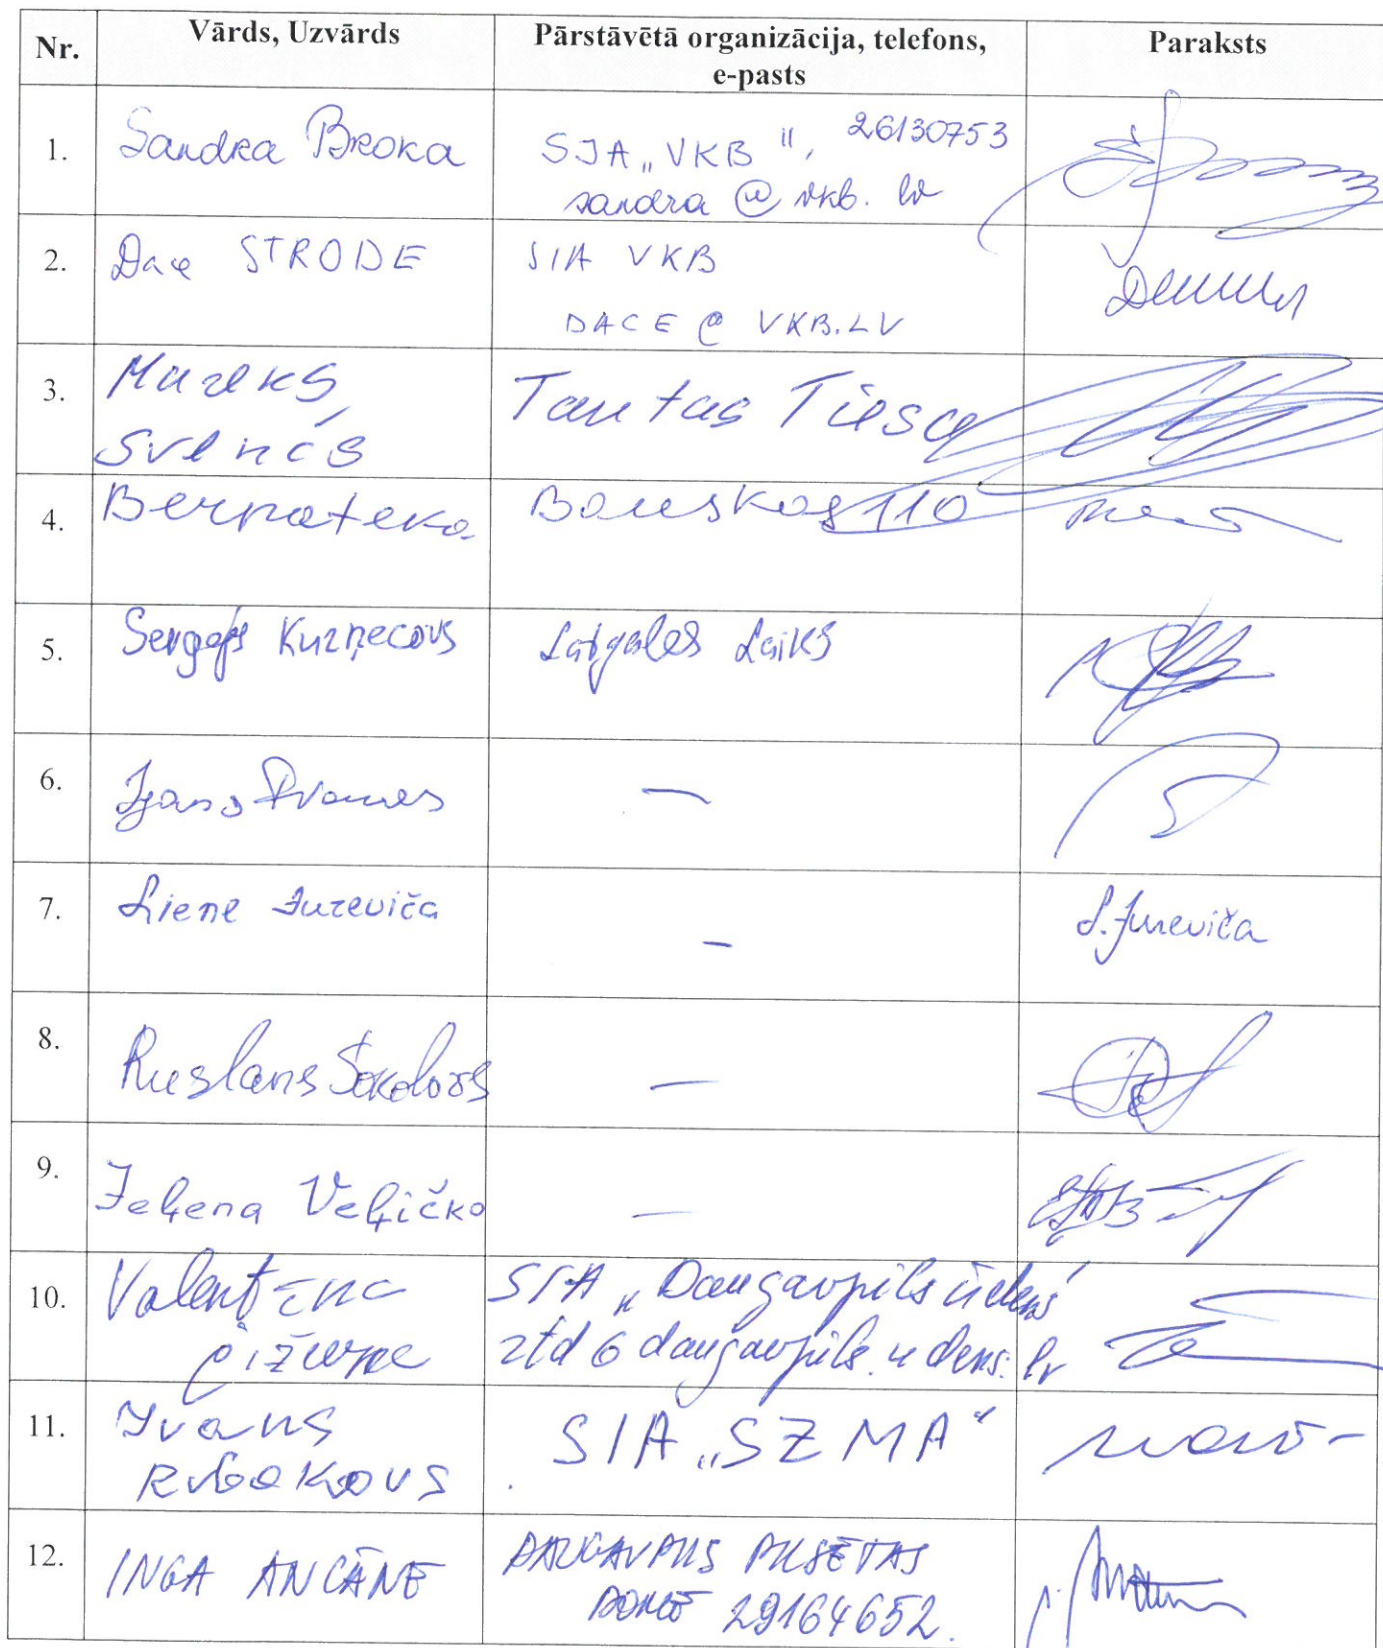 Nr. Vārds, Uzvārds Pārstāvētā organizācija, telefons,
e-pasts Paraksts
1. Sandra Broka SIA „VKB", 26130753
sandra @ vkb. lv
2. Dace STRODE SIA VKB
DACE @ VKB.LV
3. Mareks Tautas Tiesa
Svencis
4. Bernateka Bauskas 110
5. Sergejs Kuzņecovs Latgales Laiks
6. —
7. Liene Jureviča — L. Jureviča
8. Ruslans Sokolovs —
9. Jeļena Veļičko —
10. Valentīna SIA „Daugavpils ūdens"
ztd @ daugavpils. udens. lv
11. Ivans SIA „SZMA"
Ribakovs
12. INGA ANCĀNE DAUGAVPILS PILSĒTAS
DOME 29164652.